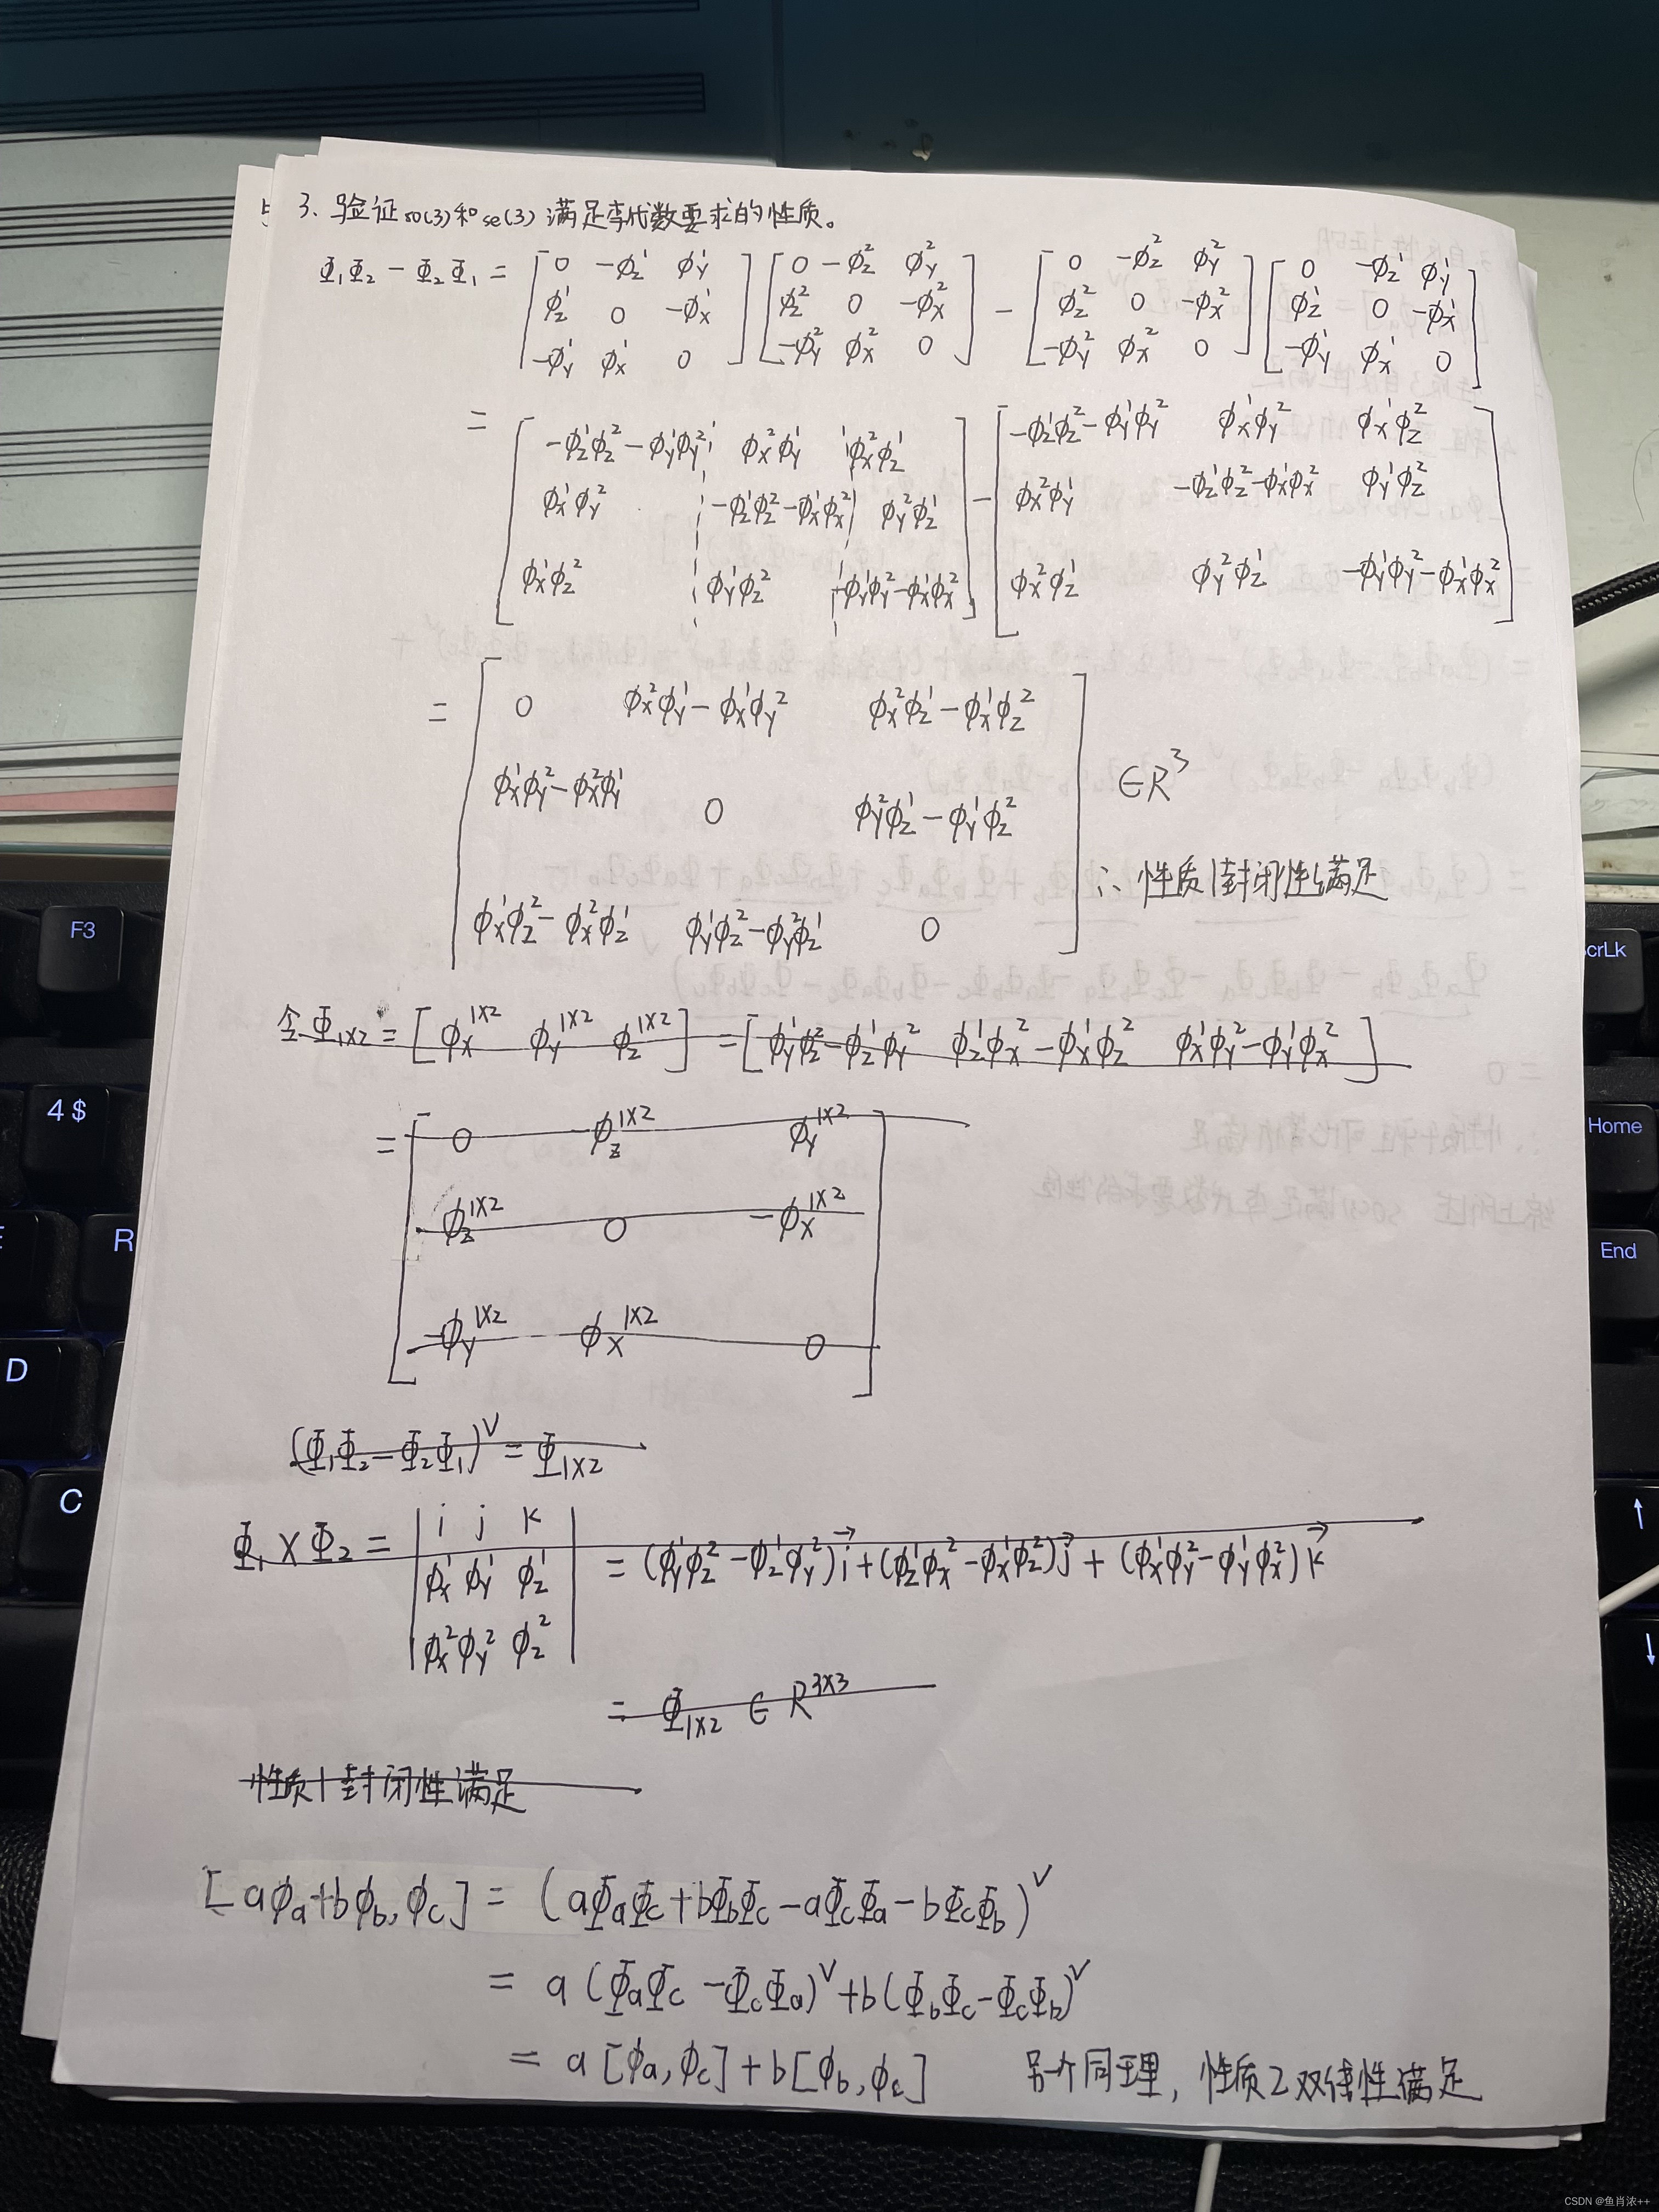 3、验证so(3)和se(3)满足李代数要求的性质。
Φ₁Φ₂ − Φ₂Φ₁ = [0 −φz¹ φY¹; φz¹ 0 −φx¹; −φY¹ φx¹ 0] [0 −φz² φY²; φz² 0 −φx²; −φY² φx² 0] − [0 −φz² φY²; φz² 0 −φx²; −φY² φx² 0] [0 −φz¹ φY¹; φz¹ 0 −φx¹; −φY¹ φx¹ 0]
= [−φz¹φz²−φY¹φY² φx²φY¹ φx²φz¹; φx¹φY² −φz¹φz²−φx¹φx² φY²φz¹; φx¹φz² φY¹φz² −φY¹φY²−φx¹φx²] − [−φz¹φz²−φY¹φY² φx¹φY² φx¹φz²; φx²φY¹ −φz¹φz²−φx¹φx² φY¹φz²; φx²φz¹ φY²φz¹ −φY¹φY²−φx¹φx²]
= [0 φx²φY¹−φx¹φY² φx²φz¹−φx¹φz²; φx¹φY²−φx²φY¹ 0 φY²φz¹−φY¹φz²; φx¹φz²−φx²φz¹ φY¹φz²−φY²φz¹ 0] ∈R³
∴ 性质1封闭性满足
令Φ₁ₓ₂ = [φx^1×2 φY^1×2 φz^1×2] = [φY¹φz²−φz¹φY² φz¹φx²−φx¹φz² φx¹φY²−φY¹φx²]
= [0 −φz^1×2 φY^1×2; φz^1×2 0 −φx^1×2; −φY^1×2 φx^1×2 0]
(Φ₁Φ₂−Φ₂Φ₁)^∨ = Φ₁ₓ₂
Φ₁ × Φ₂ = |i j k; φx¹ φY¹ φz¹; φx² φY² φz²| = (φY¹φz²−φz¹φY²)i⃗+(φz¹φx²−φx¹φz²)j⃗+(φx¹φY²−φY¹φx²)k⃗
= Φ₁ₓ₂ ∈ R^3×3
性质1封闭性满足
[aφa+bφb, φc] = (aΦaΦc+bΦbΦc−aΦcΦa−bΦcΦb)^∨
= a(ΦaΦc−ΦcΦa)^∨+b(ΦbΦc−ΦcΦb)^∨
= a[φa,φc]+b[φb,φc] 另个同理，性质2双线性满足
F3
4 $
R
D
C
crLk
Home
End
↑
↓
CSDN @鱼肖浓++